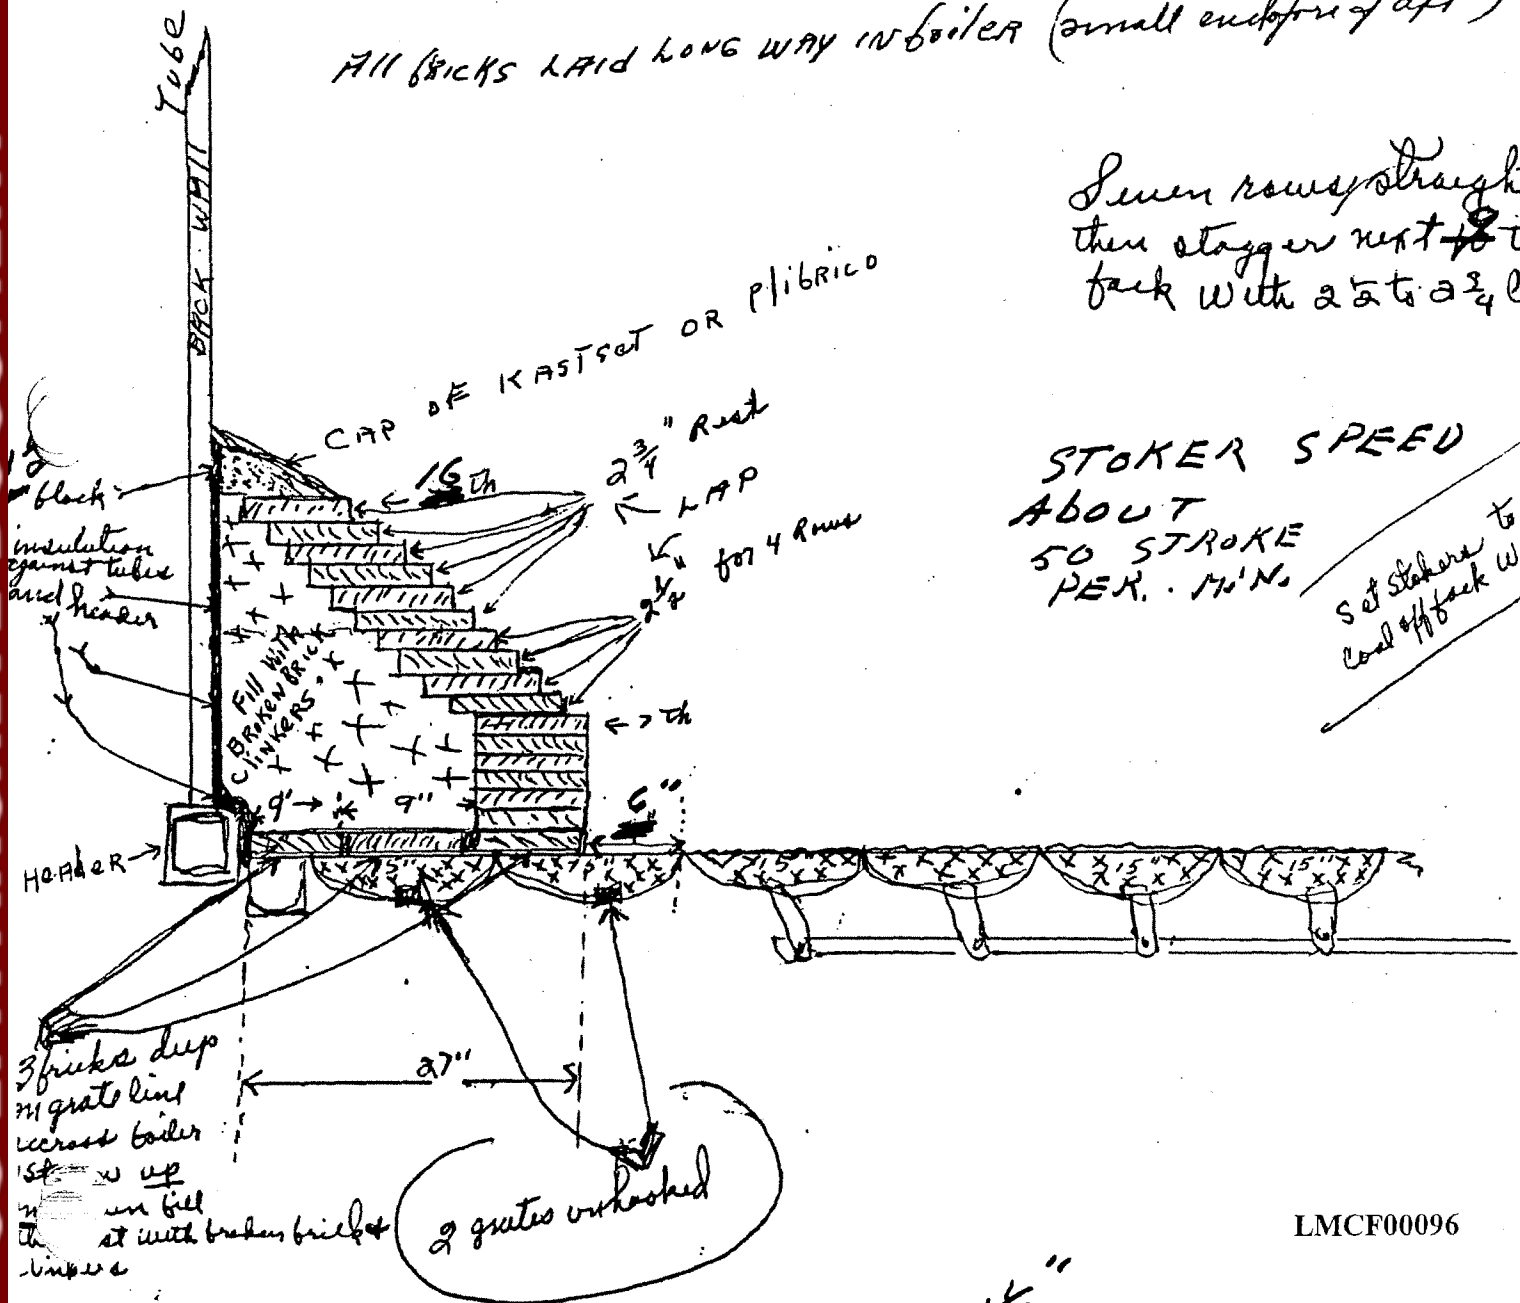 All bricks LAId LONG WAY IN boileR (small end
Tube
BACK WAll
Seven rows straigh
then stagger next 9
back with 2 1/2 to 2 3/4
CAP OF KASTSET OR PlibRICO
16th
2 3/4" Rest
LAP
2 1/2" for 4 Rows
STOKER SPEED
AbOUT
50 STROKE
PER. MIN.
Set Stokers to
Coal off back w
block
insulation
against tubes
and header
Fill With
BROKEN BRICK
ClINKERS
7th
9"
9"
6"
HEAdER
15"
15"
15"
15"
15"
3 bricks deep
grate line
across boiler
up
fill
with broken brick &
27"
2 grates unhooked
LMCF00096